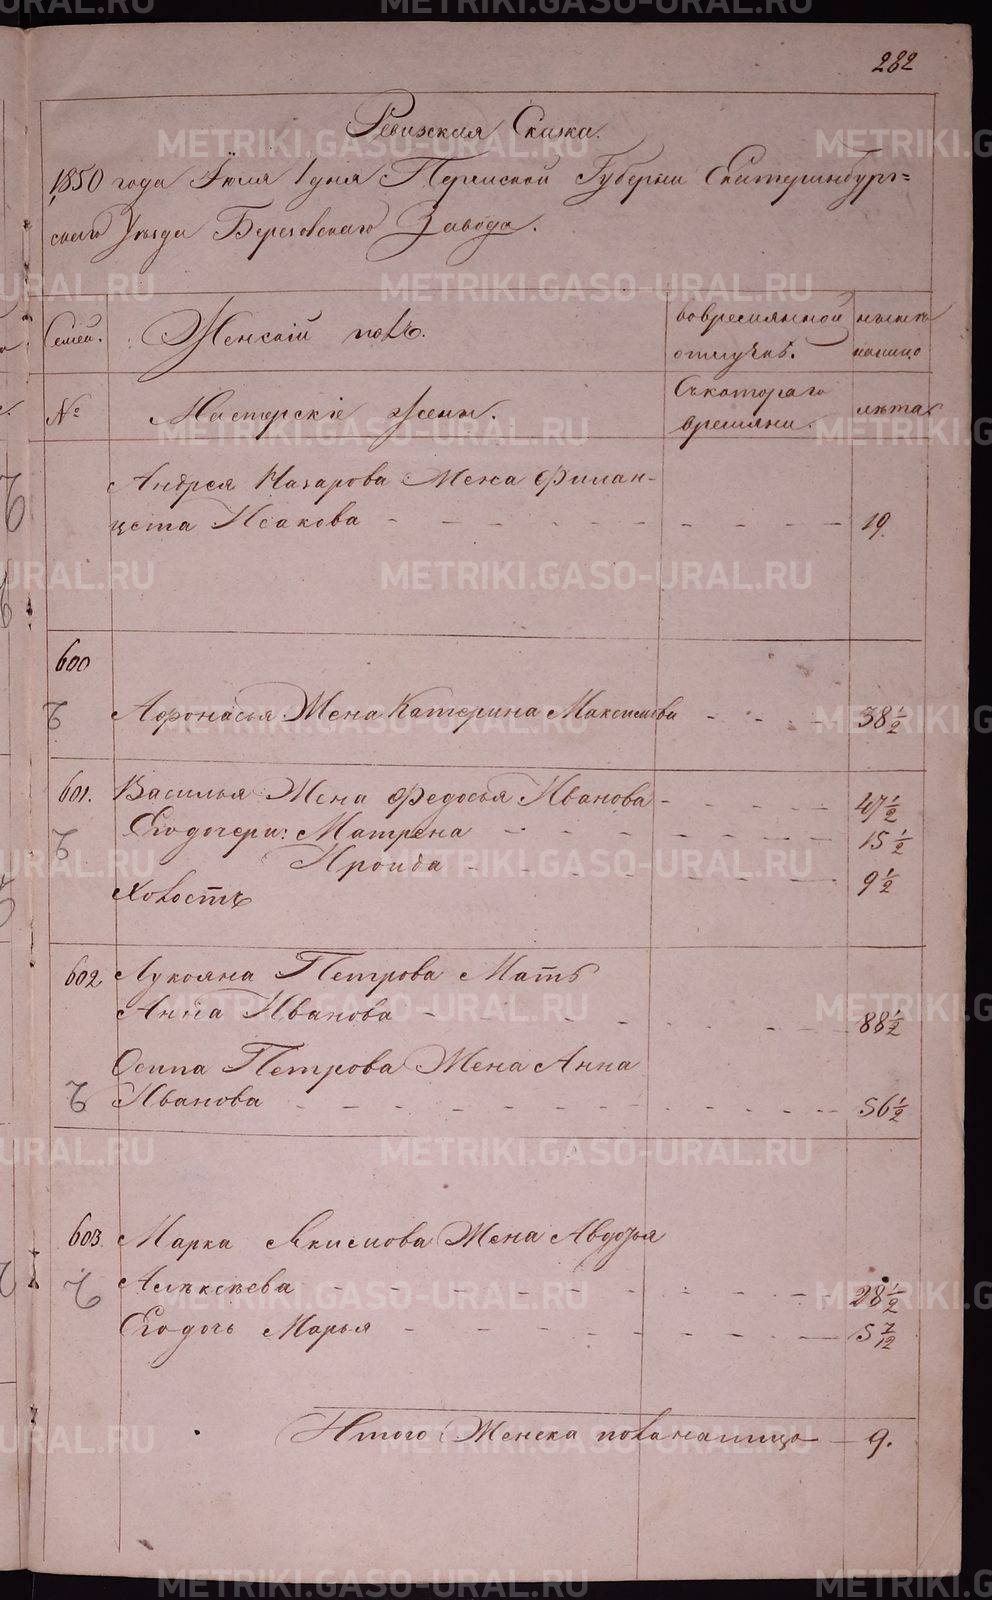 282
Ревизская Сказка.
1850 года Июля 1 дня Пермской Губерни Екатеринбург=
скаго Уезда Березовскаго Завода.
Семей. Женскій полъ. вовремянной отлучке. ныне налицо
№ Мастерскіе Жены. Съкотораго времяни. лета
Андрея Назарова Жена Филан-
цета Исакова - - - - - - - 19.
600
Афонасья Жена Катерина Максимова - - - 38 1/2
601. Василья Жена Федосья Иванова - - - - 47 1/2
Егодочери: Матрена - - - - - 15 1/2
Ироида - - - - - 9 1/2
Холостъ
602 Лукояна Петрова Мать
Анна Иванова - - - - - - 88 1/2
Осипа Петрова Жена Анна
Иванова - - - - - - - 56 1/2
603. Марка Якимова Жена Авдотья
Алексеева - - - - - - - 28 1/2
Егодочь Марья - - - - - - 5 7/12
Итого Женска полу налицо - 9.
METRIKI.GASO-URAL.RU